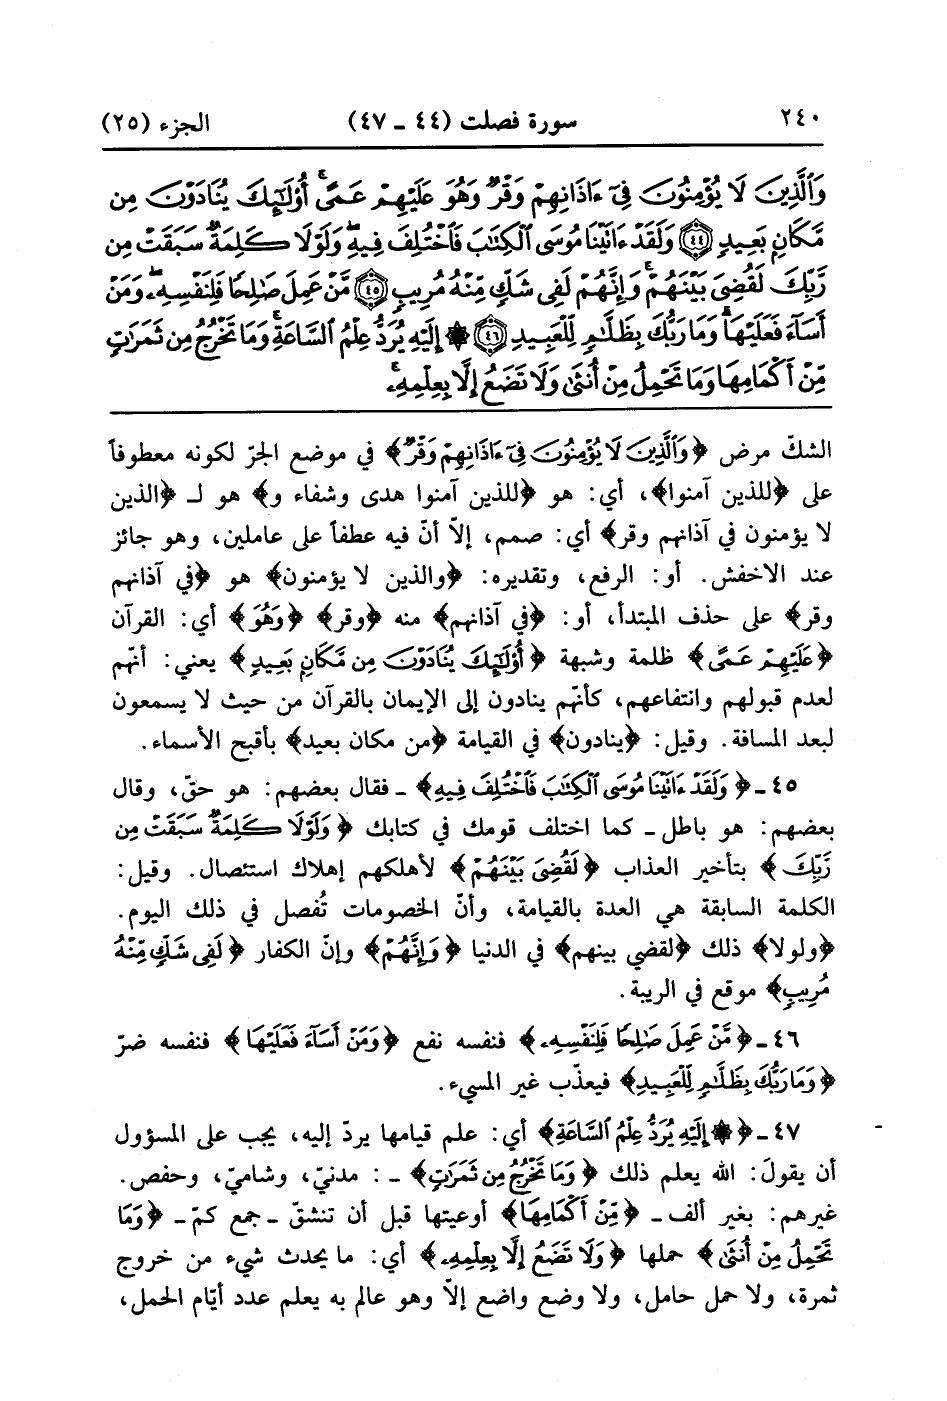 ٢٤٠ سورة فصلت (٤٤ ـ ٤٧) الجزء (٢٥)
وَٱلَّذِينَ لَا يُؤْمِنُونَ فِىٓ ءَاذَانِهِمْ وَقْرٌ وَهُوَ عَلَيْهِمْ عَمًى ۚ أُو۟لَٰٓئِكَ يُنَادَوْنَ مِن
مَّكَانٍ بَعِيدٍ ﴿٤٤﴾ وَلَقَدْ ءَاتَيْنَا مُوسَى ٱلْكِتَٰبَ فَٱخْتُلِفَ فِيهِ ۗ وَلَوْلَا كَلِمَةٌ سَبَقَتْ مِن
رَّبِّكَ لَقُضِىَ بَيْنَهُمْ ۚ وَإِنَّهُمْ لَفِى شَكٍّ مِّنْهُ مُرِيبٍ ﴿٤٥﴾ مَّنْ عَمِلَ صَٰلِحًا فَلِنَفْسِهِۦ ۖ وَمَنْ
أَسَآءَ فَعَلَيْهَا ۗ وَمَا رَبُّكَ بِظَلَّٰمٍ لِّلْعَبِيدِ ﴿٤٦﴾ ۞ إِلَيْهِ يُرَدُّ عِلْمُ ٱلسَّاعَةِ ۚ وَمَا تَخْرُجُ مِن ثَمَرَٰتٍ
مِّنْ أَكْمَامِهَا وَمَا تَحْمِلُ مِنْ أُنثَىٰ وَلَا تَضَعُ إِلَّا بِعِلْمِهِۦ ۚ
الشكّ مرض ﴿وَٱلَّذِينَ لَا يُؤْمِنُونَ فِىٓ ءَاذَانِهِمْ وَقْرٌ﴾ في موضع الجرّ لكونه معطوفاً
على ﴿للذين آمنوا﴾، أي: هو ﴿للذين آمنوا هدى وشفاء و﴾ هو لـ ﴿الذين
لا يؤمنون في آذانهم وقر﴾ أي: صمم، إلاّ أنّ فيه عطفاً على عاملين، وهو جائز
عند الاخفش. أو: الرفع، وتقديره: ﴿والذين لا يؤمنون﴾ هو ﴿في آذانهم
وقر﴾ على حذف المبتدأ، أو: ﴿في آذانهم﴾ منه ﴿وقر﴾ ﴿وَهُوَ﴾ أي: القرآن
﴿عَلَيْهِمْ عَمًى﴾ ظلمة وشبهة ﴿أُو۟لَٰٓئِكَ يُنَادَوْنَ مِن مَّكَانٍ بَعِيدٍ﴾ يعني: أنهّم
لعدم قبولهم وانتفاعهم، كأنهّم ينادون إلى الإيمان بالقرآن من حيث لا يسمعون
لبعد المسافة. وقيل: ﴿ينادون﴾ في القيامة ﴿من مكان بعيد﴾ بأقبح الأسماء.
٤٥ ـ ﴿وَلَقَدْ ءَاتَيْنَا مُوسَى ٱلْكِتَٰبَ فَٱخْتُلِفَ فِيهِ﴾ ـ فقال بعضهم: هو حقّ، وقال
بعضهم: هو باطل ـ كما اختلف قومك في كتابك ﴿وَلَوْلَا كَلِمَةٌ سَبَقَتْ مِن
رَّبِّكَ﴾ بتأخير العذاب ﴿لَقُضِىَ بَيْنَهُمْ﴾ لأهلكهم إهلاك استئصال. وقيل:
الكلمة السابقة هي العدة بالقيامة، وأنّ الخصومات تُفصل في ذلك اليوم.
﴿ولولا﴾ ذلك ﴿لقضي بينهم﴾ في الدنيا ﴿وَإِنَّهُمْ﴾ وإنّ الكفار ﴿لَفِى شَكٍّ مِّنْهُ
مُرِيبٍ﴾ موقع في الريبة.
٤٦ ـ ﴿مَّنْ عَمِلَ صَٰلِحًا فَلِنَفْسِهِۦ﴾ فنفسه نفع ﴿وَمَنْ أَسَآءَ فَعَلَيْهَا﴾ فنفسه ضرّ
﴿وَمَا رَبُّكَ بِظَلَّٰمٍ لِّلْعَبِيدِ﴾ فيعذّب غير المسيء.
٤٧ ـ ﴿۞ إِلَيْهِ يُرَدُّ عِلْمُ ٱلسَّاعَةِ﴾ أي: علم قيامها يردّ إليه، يجب على المسؤول
أن يقولَ: الله يعلم ذلك ﴿وَمَا تَخْرُجُ مِن ثَمَرَٰتٍ﴾ ـ : مدنيّ، وشاميّ، وحفص.
غيرهم: بغير ألف ـ ﴿مِّنْ أَكْمَامِهَا﴾ أوعيتها قبل أن تنشقّ ـ جمع كمّ ـ ﴿وَمَا
تَحْمِلُ مِنْ أُنثَىٰ﴾ حملها ﴿وَلَا تَضَعُ إِلَّا بِعِلْمِهِۦ﴾ أي: ما يحدث شيء من خروج
ثمرة، ولا حمل حامل، ولا وضع واضع إلاّ وهو عالم به يعلم عدد أيّام الحمل،